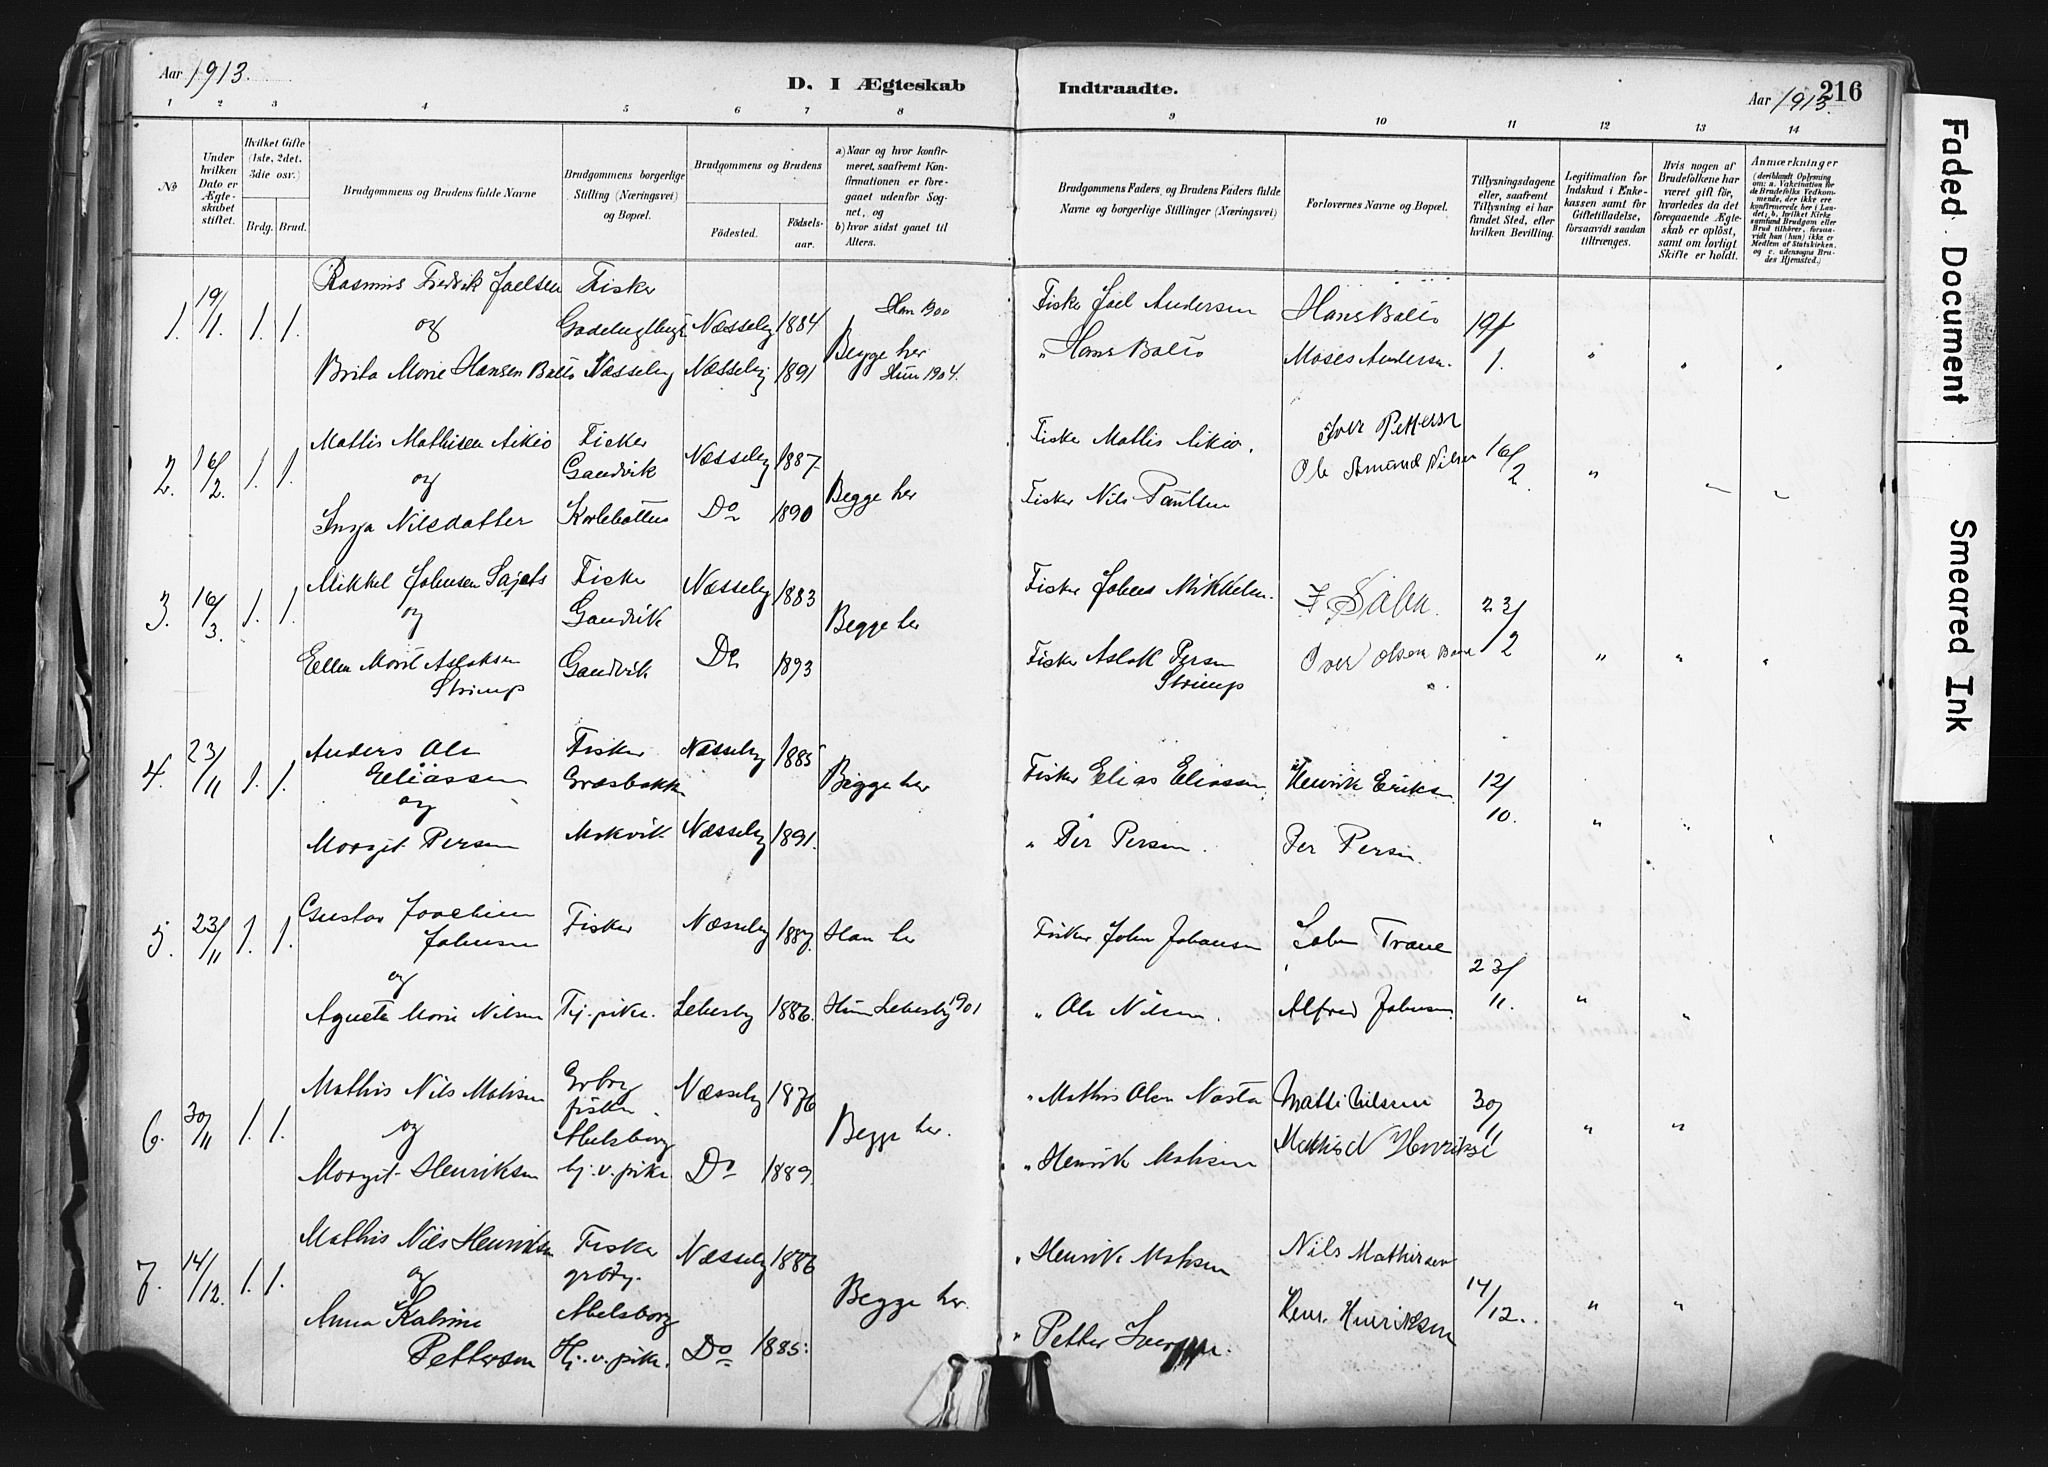 Aar 1913.
D. I Ægteskab
Indtraadte.
Aar 1913.
216
1 2 3 4 5 6 7 8
9 10 11 12 13 14
No
Under hvilken Dato er Ægteskabet stiftet.
Hvilket Gifte (1ste, 2det, 3die osv.)
Brdg. Brud.
Brudgommens og Brudens fulde Navne
Brudgommens borgerlige Stilling (Næringsvei) og Bopæl.
Brudgommens og Brudens
Fødested.
Fødselsaar.
a) Naar og hvor konfirmeret, saafremt Konfirmationen er foregaaet udenfor Sognet, og
b) hvor sidst gaaet til Alters.
Brudgommens Faders, og Brudens Faders fulde Navne og borgerlige Stillinger (Næringsvei)
Forlovernes Navne og Bopæl.
Tillysningsdagene eller, saafremt Tillysning ei har fundet Sted, efter hvilken Bevilling.
Legitimation for Indskud i Enkekassen samt for Giftetilladelse, forsaavidt saadan tiltrænges.
Hvis nogen af Brudefolkene har været gift før, hvorledes da det foregaaende Ægteskab er opløst, samt om lovligt Skifte er holdt.
Anmærkninger
(deriblandt Oplysning om: a. Vakcination for de Brudefolks Vedkommende, der ikke ere konfirmerede her i Landet; b. hvilket Kirkesamfund Brudgom eller Brud tilhører, forsaavidt han (hun) ikke er Medlem af Statskirken, og c. udensogns Brudes Hjemsted.)
1. 19/1. 1. 1. Rasmus Fredrik Joelsen Fisker
og Næsseby 1884 Han 1900
Brita Marie Hansen Balto Næsseby Næsseby 1891 Begge her Hun 1904.
Fisker Joel Andersen Hans Balto 19/1.
" Hans Balto Moses Andersen " " "
2. 16/2. 1. 1. Mathis Mathisen Aikio Fisker Gandvik Næsseby 1887.
og Begge her
Inga Nilsdatter Do 1890
Fisker Mathis Aikio. Iver Petterson
Ole Amund Nilsen 16/2. "
Fisker Nils Paulsen
3. 16/3. 1. 1. Mikkel Johnsen Sajets Fisker Gandvik Næsseby 1883
og Begge her
Ellen Marit Aslaksen Strimp Gandvik Do 1893
Fisker Johns Mikkelsen. 23/2
Fisker Aslak Persen Strimp Iver Olsen " " "
4. 23/11 1. 1. Anders Ole Eliassen Fisker Græsbakken Næsseby 1885
og Begge her
Margit Persen Næsseby 1891.
Fisker Elias Eliassen, Henrik Eriksen 12/10.
" Per Persen. Per Persen. " " "
5. 23/11 1. 1. Gustav Joachim Johnsen Fisker Næsseby 1887. Han her
og
Agneta Marie Nilsen Tj. pike. Lebesby 1886. Hun Lebesby 1901
Fisker John Johansen 23/11.
" Ole Nilsen. Alfred Johnsen " "
6. 30/11 1. 1. Mathis Nils Mathisen fisker. Abelsborg Næsseby 1876
og Begge her.
Margit Henriksen tj. v. pike. Do 1889.
" Mathis Olsen Nasta Matti Nilsen 30/11
" Henrik Mathisen Mathis N Henriksen " "
7. 14/12. 1. 1. Mathis Nils Henriksen Fisker Næsseby 1886
og Abelsborg Begge her.
Anna Katrine Pettersen Hj. v. pike. Do 1885.
" Henrik Mathisen Nils Mathisen
" Petter Henr. Henriksen 14/12. " "
Faded Document
Smeared Ink